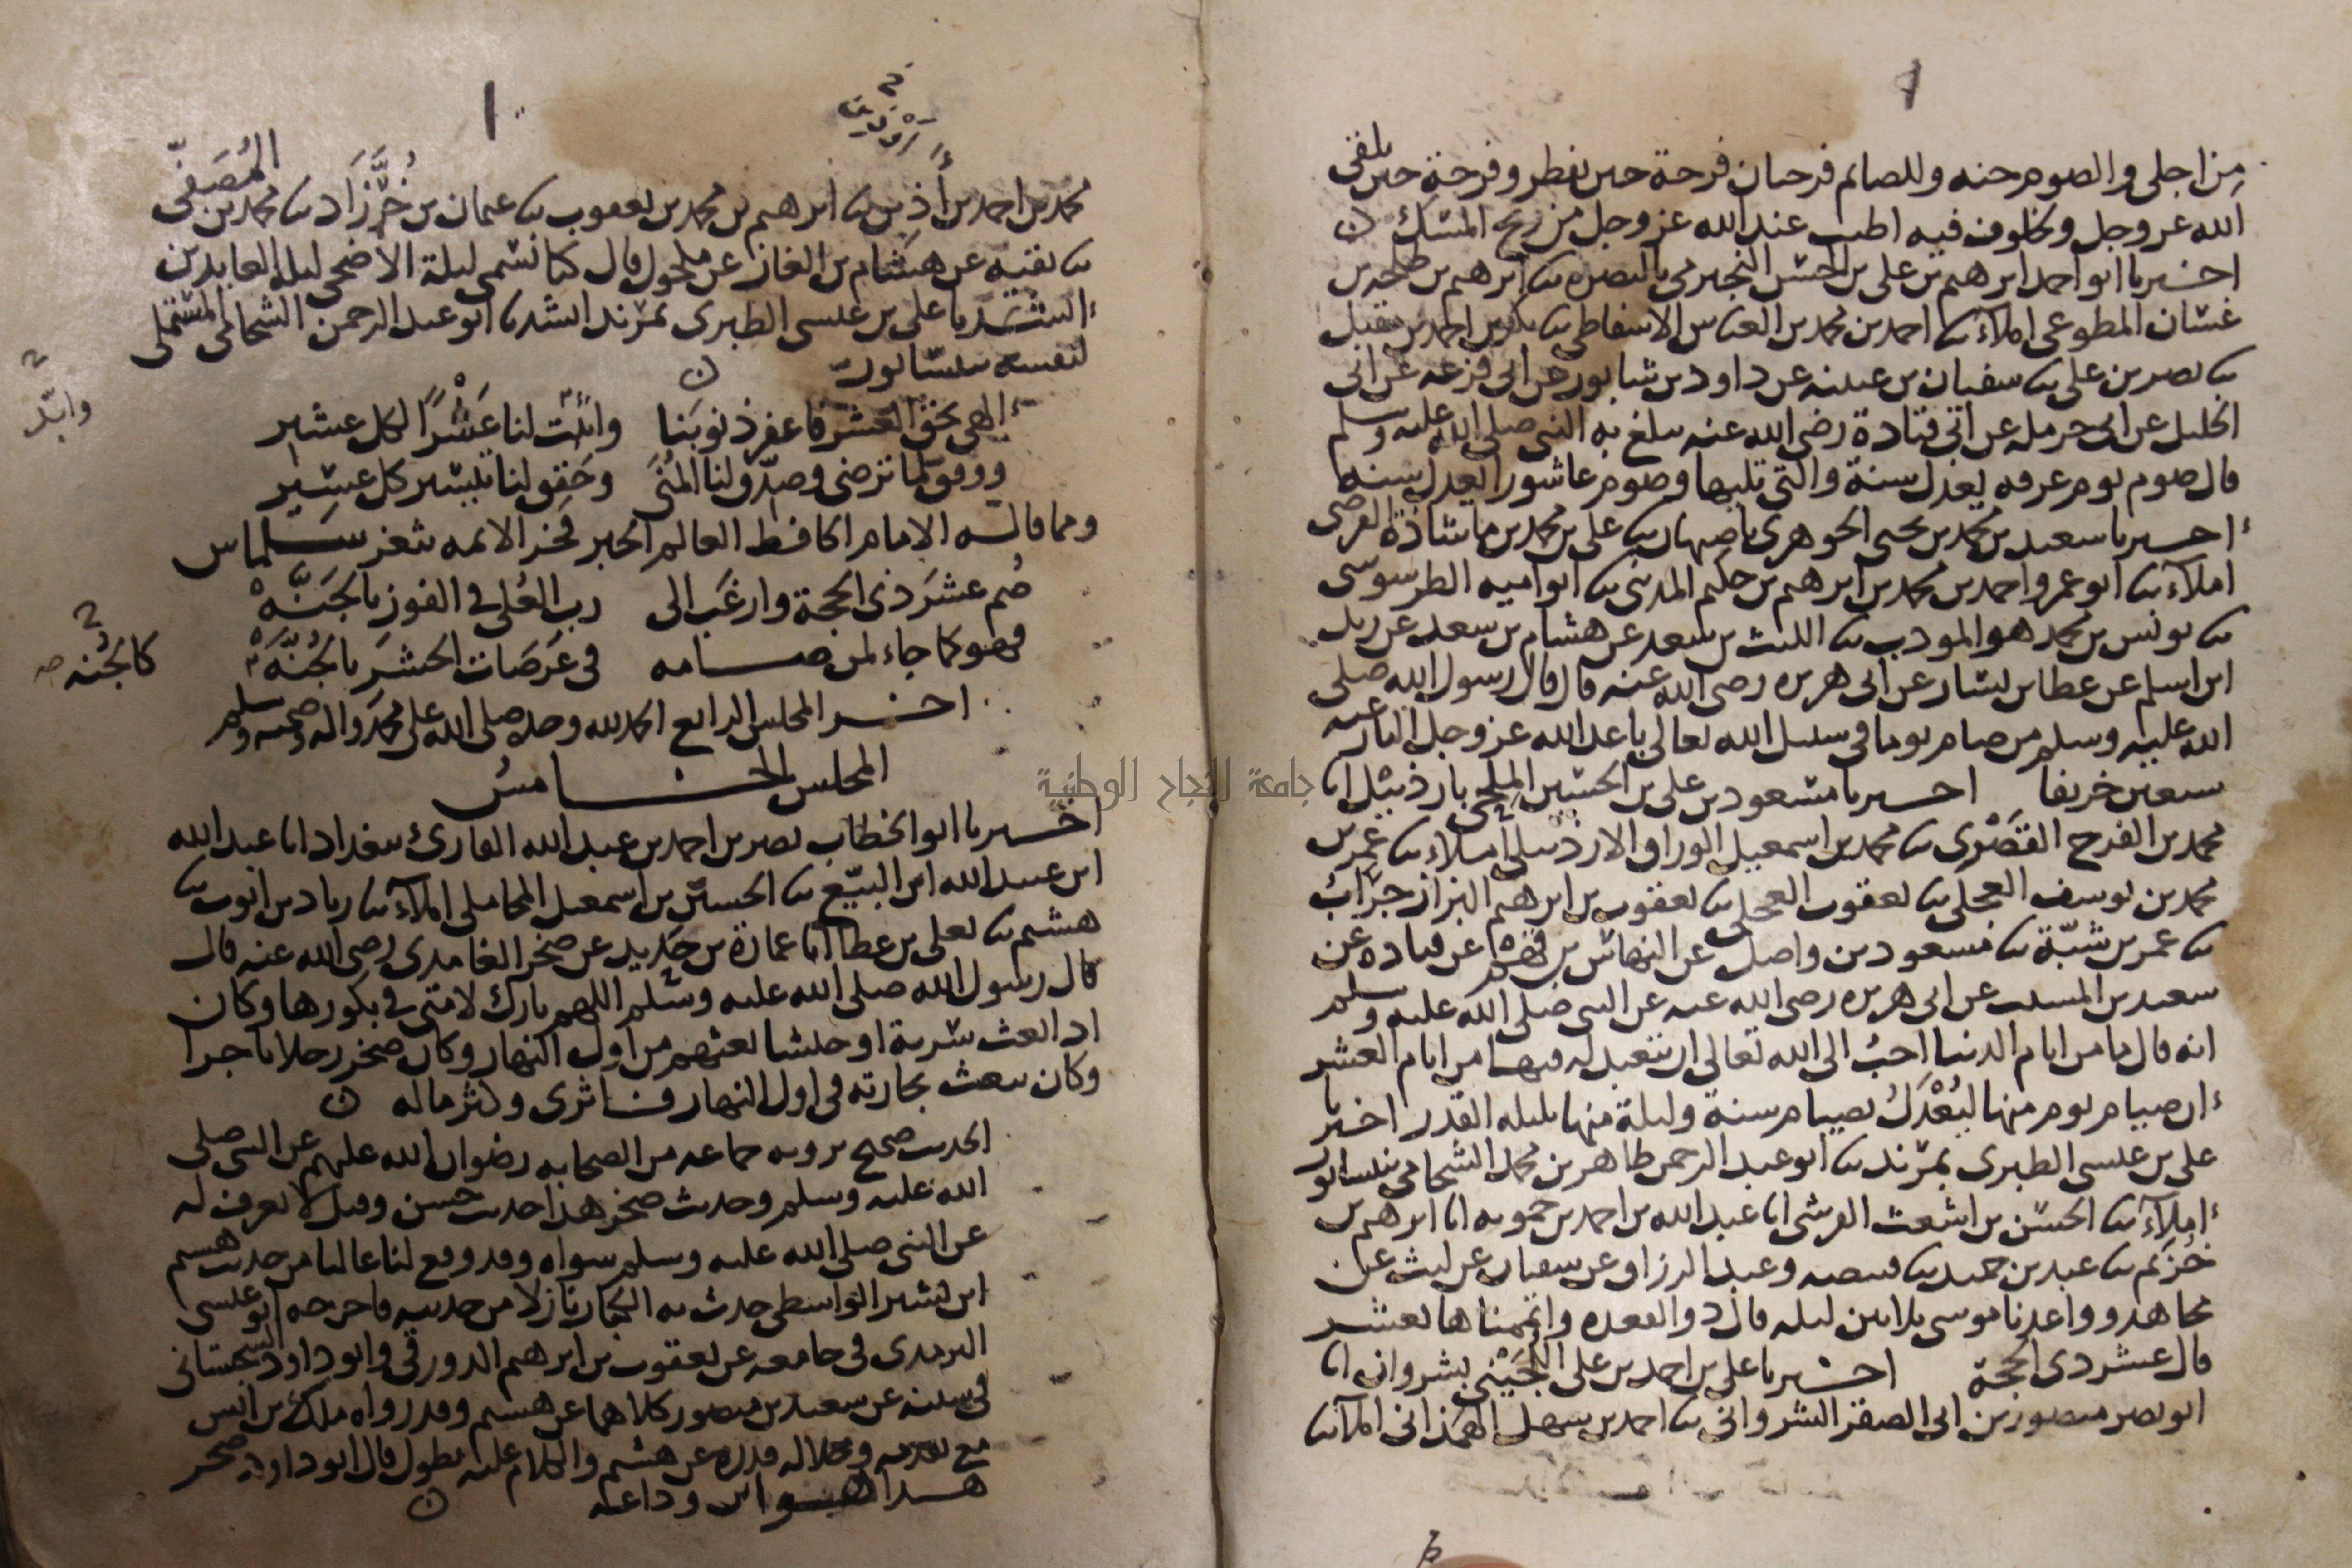 من اجلى والصوم جنه وللصائم فرحتان فرحة حين يفطر وفرحة حين يلقى
الله عز وجل ولخلوف فيه اطيب عند الله عز وجل من ريح المسك
اخبرنا ابو احمد ابرهيم بن على بن الحسن النجيرمى بالبصره ثنا ابرهيم بن طلحه بن
غسان المطوعى املاء ثنا احمد بن محمد بن العباس الاسفاطى ثنا بكر بن احمد بن مقبل
ثنا نصر بن على ثنا سفيان بن عيينه عن داود بن شابور عن ابى قزعه عن ابى
الخليل عن ابى حرمله عن ابى قتادة رضى الله عنه يبلغ به النبى صلى الله عليه وسلم
قال صوم يوم عرفه يعدل سنة والتى تليها وصوم عاشورا يعدل سنه
اخبرنا سعيد بن محمد بن يحيى الجوهرى باصبهان ثنا على بن محمد بن ماشاذة الفرضى
املاء ثنا ابو عمرو احمد بن محمد بن ابرهيم بن حكيم المدينى ثنا ابو اميه الطرسوسى
ثنا يونس بن محمد هو المودب ثنا الليث بن سعد عن هشام بن سعد عن زيد
ابن اسلم عن عطا بن يسار عن ابى هريره رضى الله عنه قال قال رسول الله صلى
الله عليه وسلم من صام يوما فى سبيل الله تعالى باعد الله عز وجل النار عنه
سبعين خريفا اخبرنا مسعود بن على بن الحسين الملحى باردبيل انا
محمد بن الفرح القصرى ثنا محمد بن اسمعيل الوراق الاردبيلى املاء ثنا عمر بن
محمد بن يوسف العجلى ثنا يعقوب العجلى ثنا يعقوب بن ابرهيم البزاز جراب
ثنا عمر بن شبة ثنا مسعود بن واصل عن النهاس بن قهم عن قتاده عن
سعيد بن المسيب عن ابى هريره رضى الله عنه عن النبى صلى الله عليه وسلم
انه قال ما من ايام الدنيا احب الى الله تعالى ان يتعبد له فيها من ايام العشر
ان صيام يوم منها ليعدل بصيام سنة وليلة منها بليله القدر اخبرنا
على بن عيسى الطبرى بمرند ثنا ابو عبد الرحمن طاهر بن محمد الشحامى بنيسابور
املاء ثنا الحسن بن اشعث القرشى انا عبد الله بن احمد بن حمويه انا ابرهيم بن
خزيم ثنا عبد بن حميد ثنا قبيصه وعبد الرزاق عن سفيان عن ليث عن
مجاهد وواعدنا موسى ثلاثين ليله قال ذو القعده واتممناها بعشر
قال عشر ذى الحجة اخبرنا على بن احمد بن على اللجينى بشروان انا
ابو نصر منصور بن ابى الصقر الشروانى ثنا احمد بن سهل الهمذانى املاء ثنا
محمد بن احمد بن اذين ثنا ابرهيم بن محمد بن يعقوب ثنا عثمان بن خرزاد ثنا محمد بن المصفى
ثنا بقية عن هشام بن الغاز عن مكحول قال كنا نسمى ليلة الاضحى ليلة العابدين
انشدنا على بن عيسى الطبرى بمرند انشدنا ابو عبد الرحمن الشحامى المستملى
لنفسه بنيسابور
الهى بحق العشر فاغفر ذنوبنا واثبت لنا عشرا لكل عشير
ووفق لما ترضى وصدق لنا المنى وحقق لنا تيسير كل عسير
ومما قاله الامام الحافظ العالم الحبر فخر الائمه ثغر سلماس
صم عشر ذى الحجة وارغب الى رب العلى فى الفوز بالجنه
فهو كما جاء لمن صامه فى عرصات الحشر بالجنه
كالجنه صح
اخر المجلس الرابع الحمد لله وحده صلى الله على محمد واله وصحبه وسلم
المجلس الخامس
اخبرنا ابو الخطاب نصر بن احمد بن عبد الله القارئ ببغداد انا عبد الله
ابن عبيد الله ابن البيع ثنا الحسين بن اسمعيل المحاملى املاء ثنا زياد بن ايوب ثنا
هشيم ثنا يعلى بن عطا انا عمارة بن حديد عن صخر الغامدى رضى الله عنه قال
قال رسول الله صلى الله عليه وسلم اللهم بارك لامتى فى بكورها وكان
اذا بعث سرية او جيشا بعثهم من اول النهار وكان صخر رجلا تاجرا
وكان يبعث تجارته فى اول النهار فاثرى وكثر ماله
الحديث صحيح يرويه جماعه من الصحابه رضوان الله عليهم عن النبى صلى
الله عليه وسلم وحديث صخر هذا حديث حسن وقيل لا يعرف له
عن النبى صلى الله عليه وسلم سواه وقد وقع لنا عاليا من حديث هشيم
ابن بشير الواسطى حدث به الكبار نازلا من حديثه فاخرجه ابو عيسى
الترمذى فى جامعه عن يعقوب بن ابرهيم الدورقى وابو داود السجستانى
فى سننه عن سعيد بن منصور كلاهما عن هشيم وقد رواه ملك بن انس
مع تقدمه وجلاله قدره عن هشيم والكلام عليه يطول قال ابو داود صخر
هذا هو ابن وداعه
جامعة النجاح الوطنية